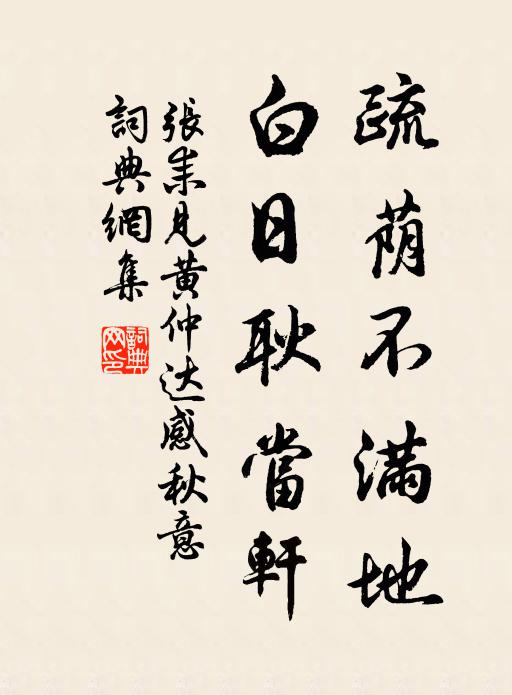 疏荫不满地
白日耿當軒
張耒見黄仲达感秋意
詞典網集
詞典網印